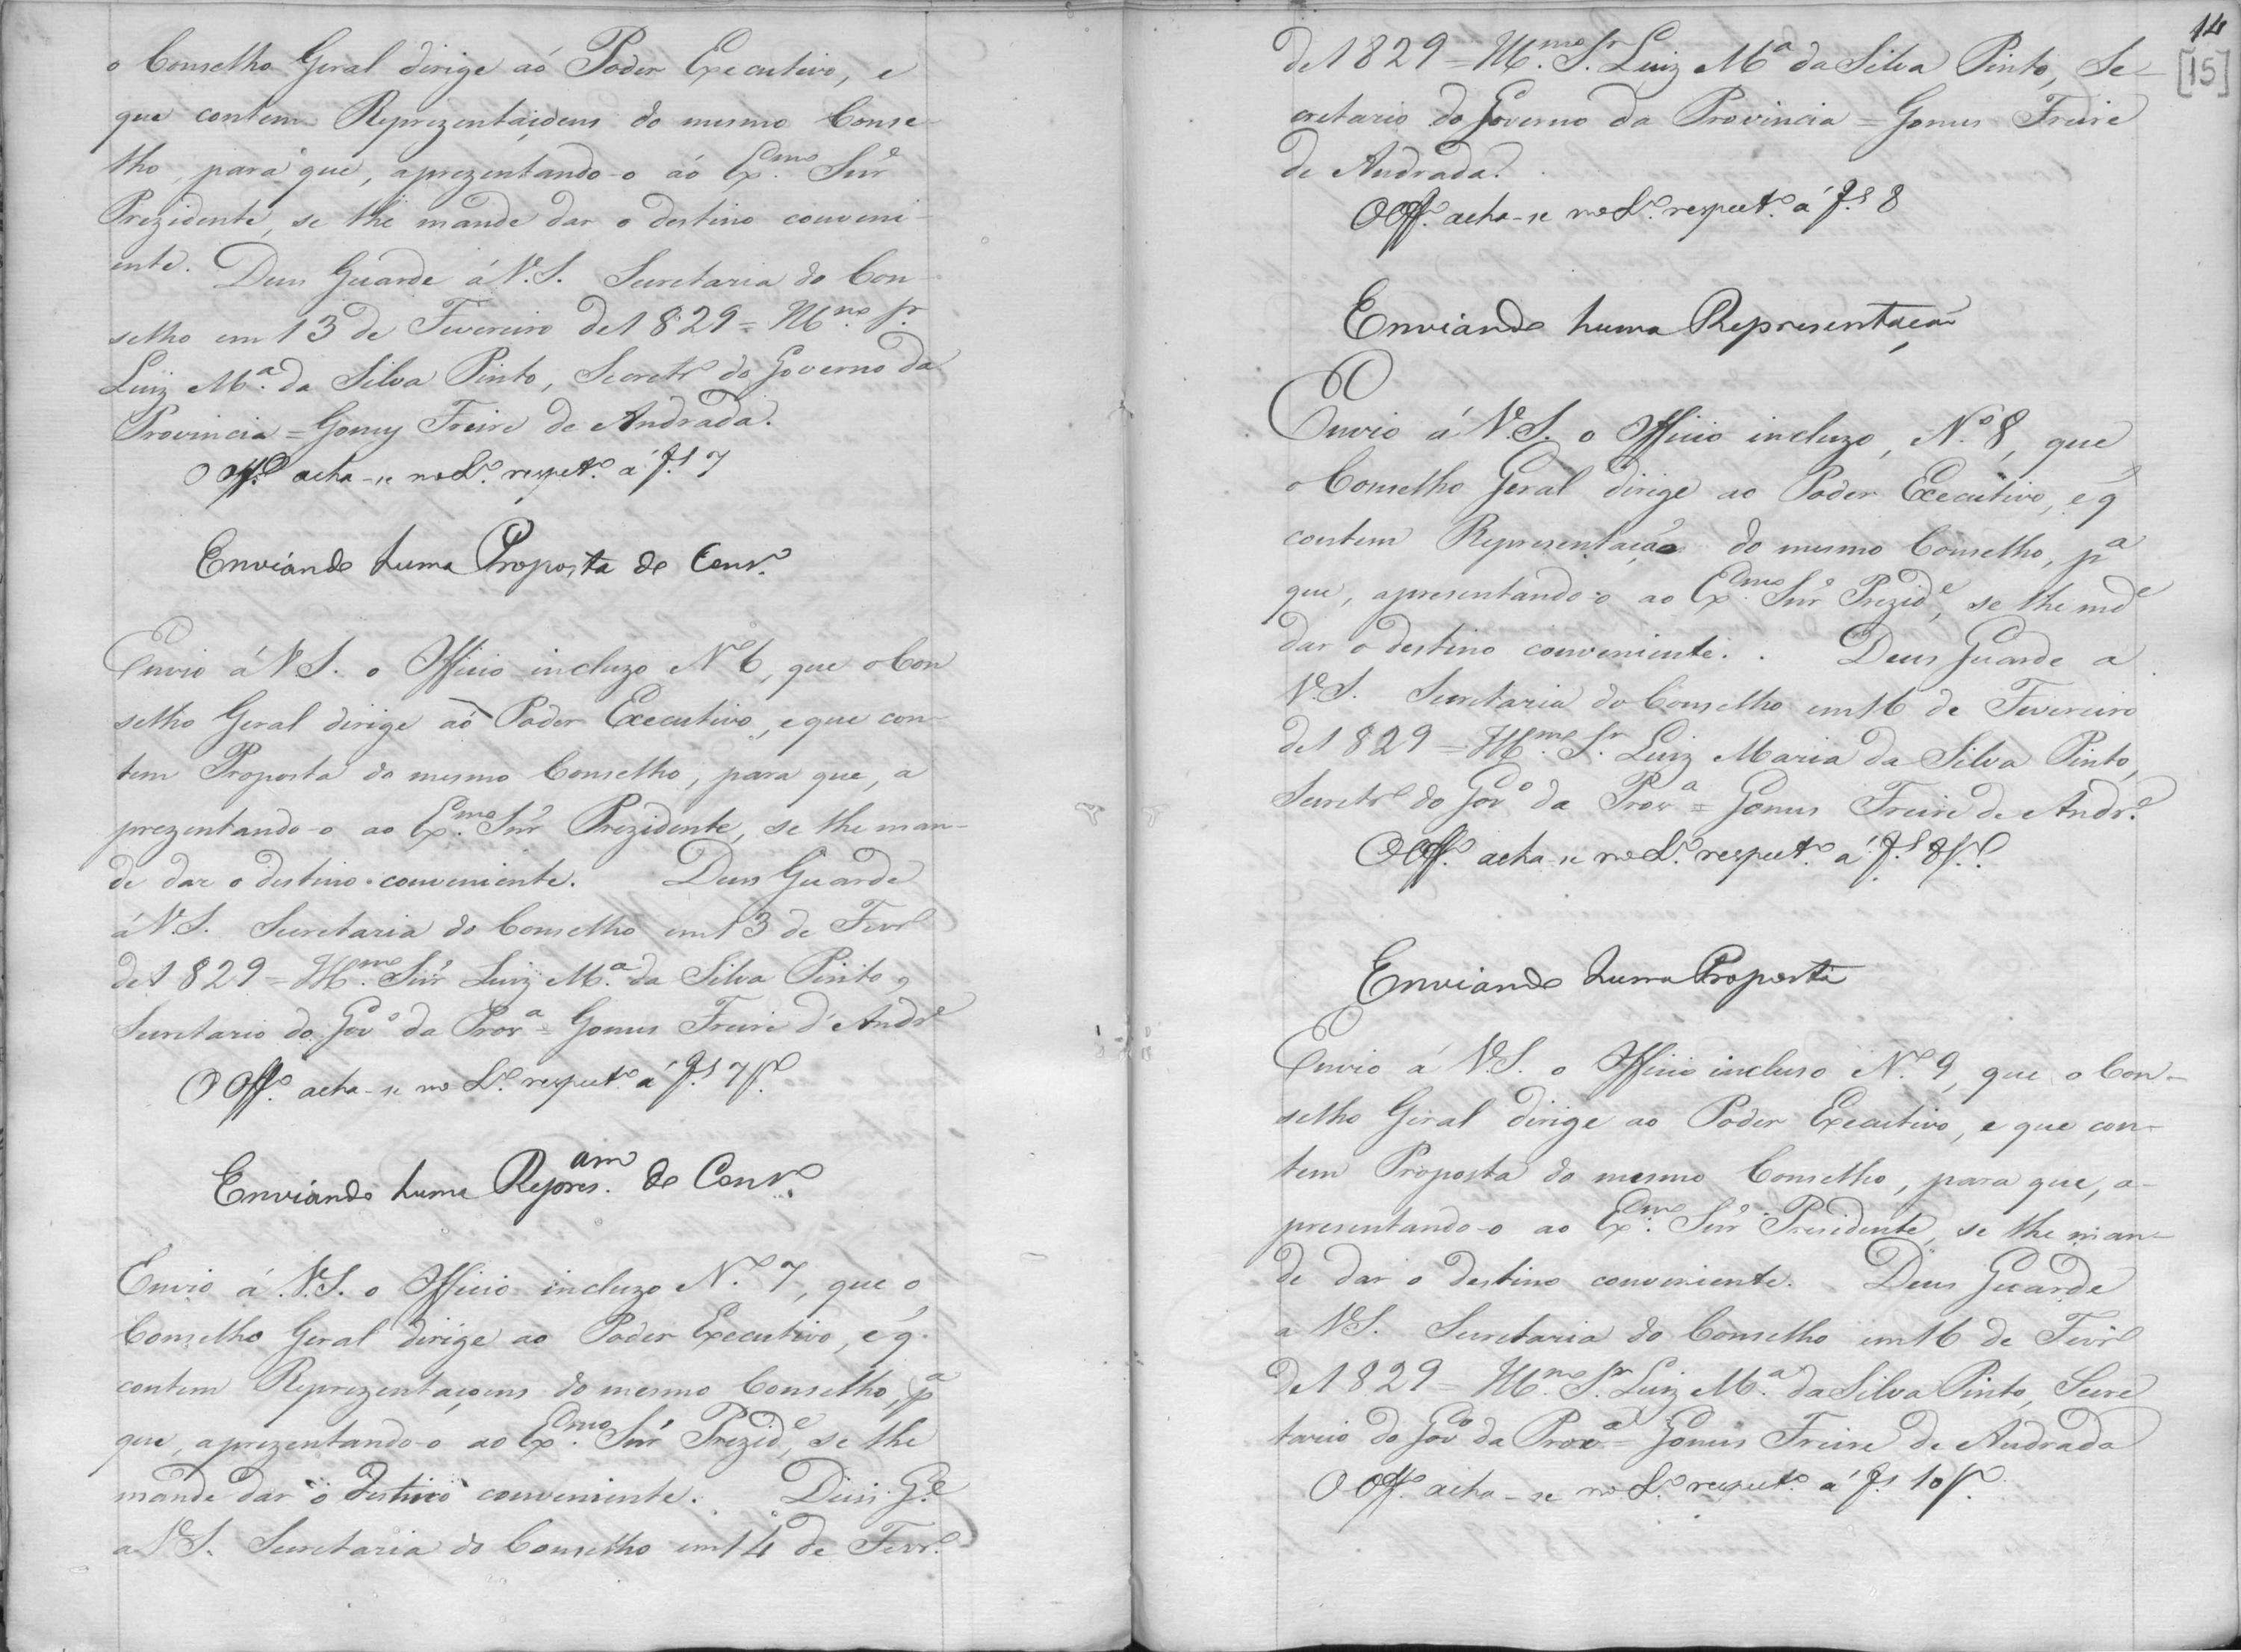 o Conselho Geral dirige aó Poder Executivo, e
que contem Reprezentaçoens do mesmo Conse-
lho, para que, aprezentando-o aó Ex.mo Snr.
Prezidente, se lhe mande dar o destino conveni-
ente. Deus Guarde á V.S. Secretaria do Con-
selho em 13 de Fevereiro de 1829 = Illmo. Sr.
Luiz Ma. da Silva Pinto, Secretr.o do Governo da
Provincia = Gomes Freire de Andrada.
O Off.o acha-se no L.o respect.o a f.s 7
Enviando huma Proposta de Cens.o
Envio á V.S. o Officio incluzo No. 6, que o Con
selho Geral dirige aó Poder Executivo, e que con-
tem Proposta do mesmo Conselho, para que, a
prezentando-o ao Ex.mo Snr. Prezidente, se lhe man-
de dar o destino conveniente. Deus Guarde
á V.S. Secretaria do Conselho em 13 de Fevr.o
de 1829 = Illmo. Snr. Luiz Ma. da Silva Pinto,
Secretario do Gov.o da Prov.a = Gomes Freire d'Andr.e
O Off.o acha-se no L.o respect.o a f.s 7
Enviando huma Repres.am de Cens.o
Envio á V.S. o Officio incluzo N.o 7, que o
Conselho Geral dirige ao Poder Executivo, e q.
contem Reprezentaçoens do mesmo Conselho, p.a
que, aprezentando-o ao Ex.mo Snr. Prezid.e, se lhe
mande dar o destino conveniente. Deus G.e
a V.S. Secretaria do Conselho em 14 de Fevr.o
14
[15]
de 1829 = Illmo. Sr. Luiz Ma. da Silva Pinto, Se-
cretario do Governo da Provincia = Gomes Freire
de Andrada.
O Off.o acha-se no L.o respect.o á f.s 8
Enviando huma Representação
Envio á V.S. o Officio incluzo, N.o 8, que
o Conselho Geral dirige ao Poder Executivo, e q
contem Representação do mesmo Conselho, p.a
que, apresentando-o ao Ex.mo Snr. Prezid.e, se lhe md.e
dar o destino conveniente. Deus Guarde a
V.S. Secretaria do Conselho em 16 de Fevereiro
de 1829 = Illmo. Sr. Luiz Maria da Silva Pinto,
Secretr.o do Gov.o da Prov.a = Gomes Freire de Andr.e
O Off.o acha-se no L.o respect.o a f.s 8
Enviando huma Proposta
Envio á V.S. o Officio incluso N.o 9, que o Con-
selho Geral dirige ao Poder Executivo, e que con-
tem Proposta do mesmo Conselho, para que, a-
presentando-o ao Ex.mo Snr. Presidente, se lhe man-
de dar o destino conveniente. Deus Guarde
a V.S. Secretaria do Conselho em 16 de Fevr.o
de 1829 = Illmo. Sr. Luiz Ma. da Silva Pinto, Secre
tario do Gov.o da Prov.a = Gomes Freire de Andrada
O Off.o acha-se no L.o respect.o á f.s 10